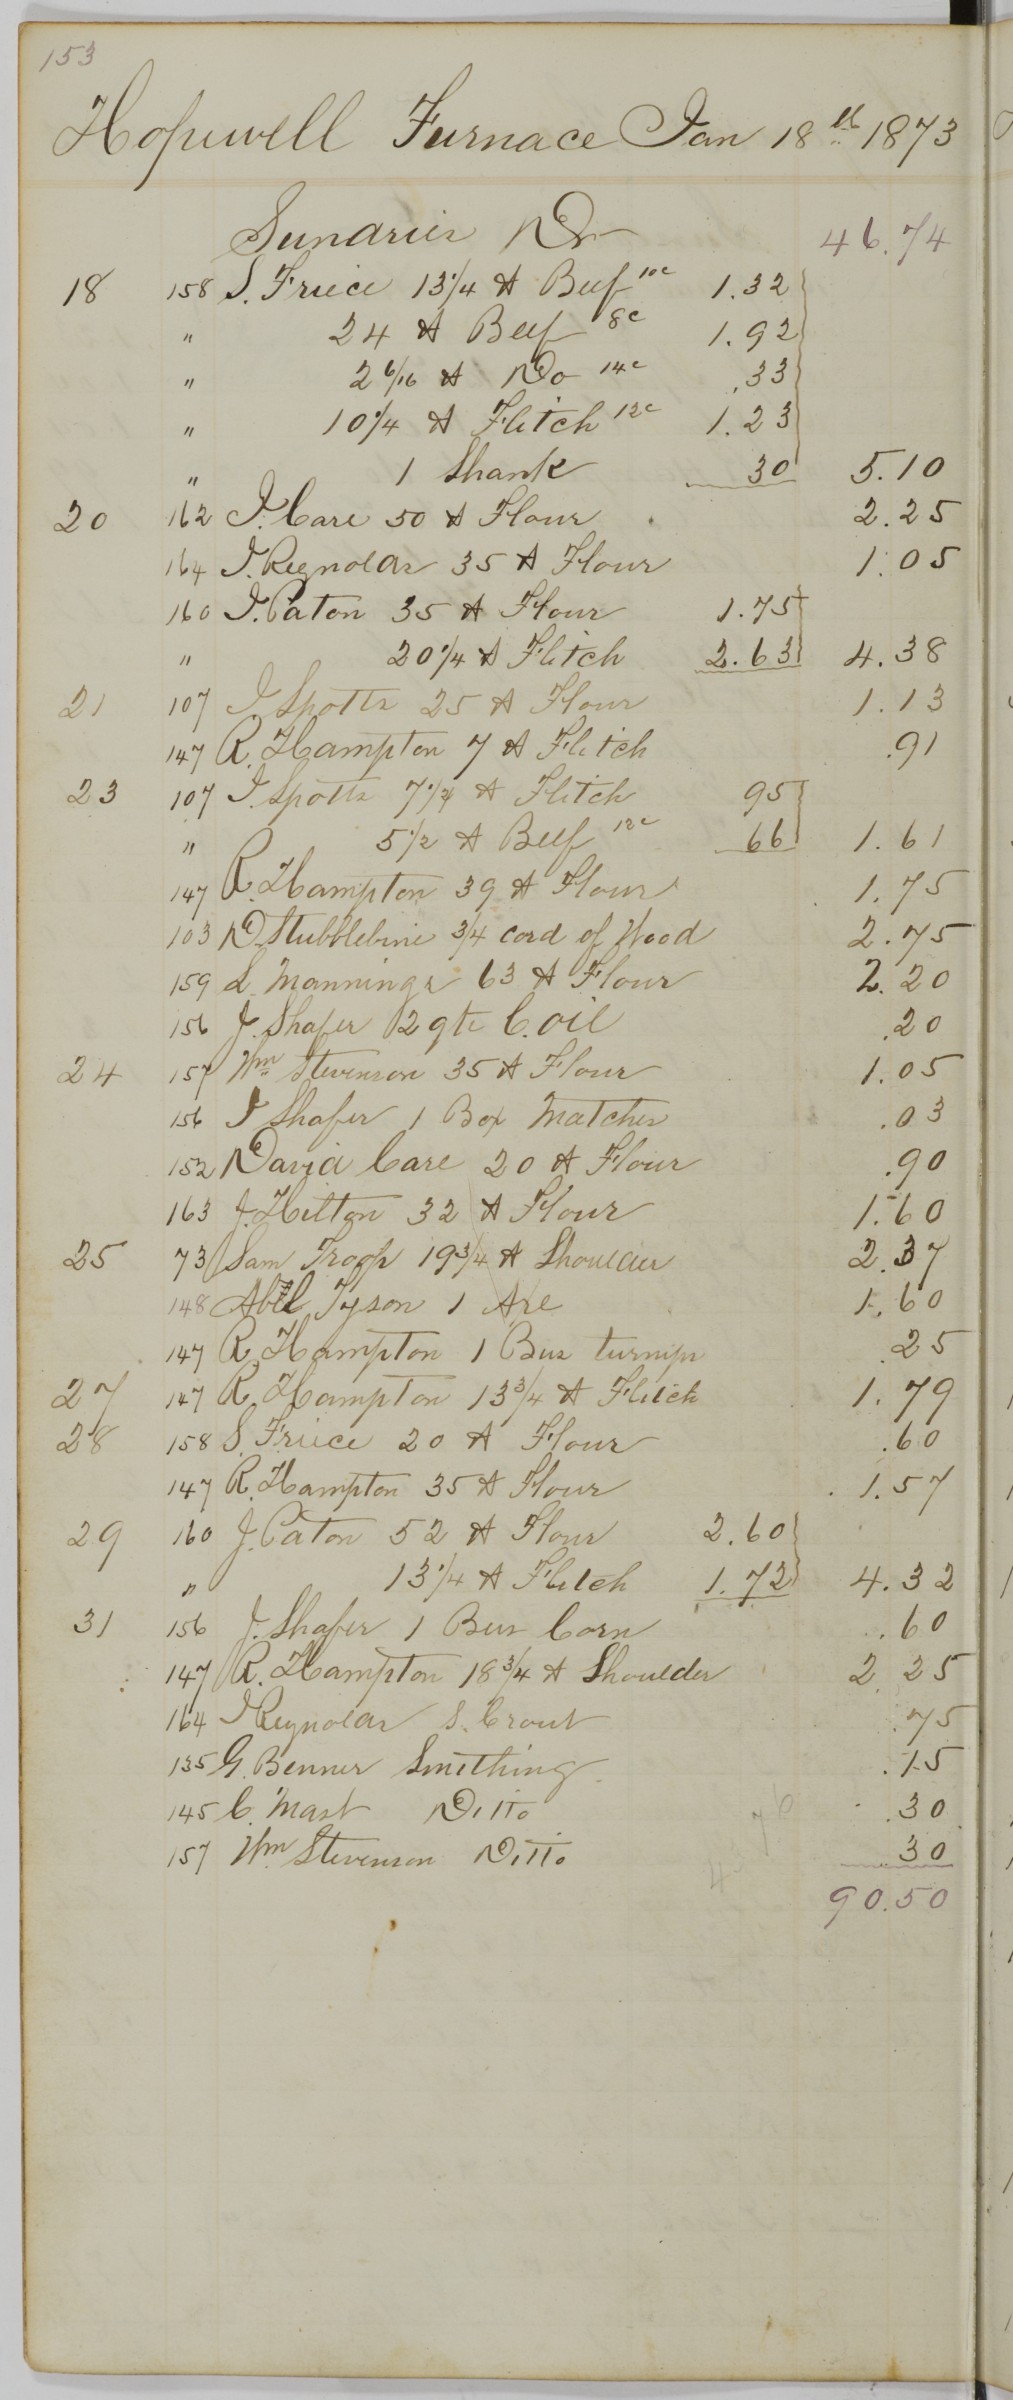 153
Hopewell Furnace Jan 18th 1873
Sundries Dr 46.74
18 158 S. Friece 13 1/4 lb Beef 10c 1.32
" 24 lb Beef 8c 1.92
" 2 6/16 lb Do 14c .33
" 10 1/4 lb Flitch 12c 1.23
" 1 Shank 30 5.10
20 162 J. Care 50 lb Flour 2.25
164 J. Reynolds 35 lb Flour 1.05
160 J. Caton 35 lb Flour 1.75
" 20 1/4 lb Flitch 2.63 4.38
21 107 J Spotts 25 lb Flour 1.13
147 R. Hampton 7 lb Flitch .91
23 107 J. Spotts 7 1/4 lb Flitch 95
" 5 1/2 lb Beef 12c 66 1.61
147 R. Hampton 39 lb Flour 1.75
103 D. Stubblebine 3/4 cord of Wood 2.75
159 L. Mannings 63 lb Flour 2.20
156 J. Shafer 2 qts C. Oil .20
24 157 Wm Stevenson 35 lb Flour 1.05
156 J Shafer 1 Box Matches .03
152 David Care 20 lb Flour .90
163 J. Hilton 32 lb Flour 1.60
25 73 Sam Troop 19 3/4 lb Shoulder 2.37
148 Abel Tyson 1 Axe 1.60
147 R. Hampton 1 Bus turnips .25
27 147 R. Hampton 13 3/4 lb Flitch 1.79
28 158 S. Friece 20 lb Flour .60
147 R. Hampton 35 lb Flour 1.57
29 160 J. Caton 52 lb Flour 2.60
" 13 1/4 lb Flitch 1.72 4.32
31 156 J. Shafer 1 Bus Corn .60
147 R. Hampton 18 3/4 lb Shoulder 2.25
164 J Reynolds S. Crout .75
135 G. Benner Smithing .15
145 C. Mast Ditto .30
157 Wm Stevenson Ditto .30
90.50